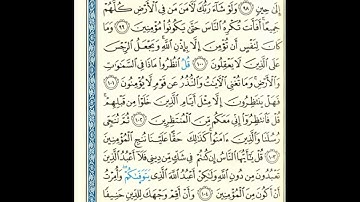 إِلَىٰ حِينٍ ٩٨ وَلَوْ شَآءَ رَبُّكَ لَـَٔامَنَ مَن فِى ٱلْأَرْضِ كُلُّهُمْ
جَمِيعًا أَفَأَنتَ تُكْرِهُ ٱلنَّاسَ حَتَّىٰ يَكُونُوا۟ مُؤْمِنِينَ ٩٩ وَمَا
كَانَ لِنَفْسٍ أَن تُؤْمِنَ إِلَّا بِإِذْنِ ٱللَّهِ وَيَجْعَلُ ٱلرِّجْسَ
عَلَى ٱلَّذِينَ لَا يَعْقِلُونَ ١٠٠ قُلِ ٱنظُرُوا۟ مَاذَا فِى ٱلسَّمَـٰوَٰتِ
وَٱلْأَرْضِ وَمَا تُغْنِى ٱلْـَٔايَـٰتُ وَٱلنُّذُرُ عَن قَوْمٍ لَّا يُؤْمِنُونَ ١٠١
فَهَلْ يَنتَظِرُونَ إِلَّا مِثْلَ أَيَّامِ ٱلَّذِينَ خَلَوْا۟ مِن قَبْلِهِمْ
قُلْ فَٱنتَظِرُوٓا۟ إِنِّى مَعَكُم مِّنَ ٱلْمُنتَظِرِينَ ١٠٢ ثُمَّ نُنَجِّى
رُسُلَنَا وَٱلَّذِينَ ءَامَنُوا۟ كَذَٰلِكَ حَقًّا عَلَيْنَا نُنجِ ٱلْمُؤْمِنِينَ
١٠٣ قُلْ يَـٰٓأَيُّهَا ٱلنَّاسُ إِن كُنتُمْ فِى شَكٍّ مِّن دِينِى فَلَآ أَعْبُدُ ٱلَّذِينَ
تَعْبُدُونَ مِن دُونِ ٱللَّهِ وَلَـٰكِنْ أَعْبُدُ ٱللَّهَ ٱلَّذِى يَتَوَفَّىٰكُمْ وَأُمِرْتُ
أَنْ أَكُونَ مِنَ ٱلْمُؤْمِنِينَ ١٠٤ وَأَنْ أَقِمْ وَجْهَكَ لِلدِّينِ حَنِيفًا